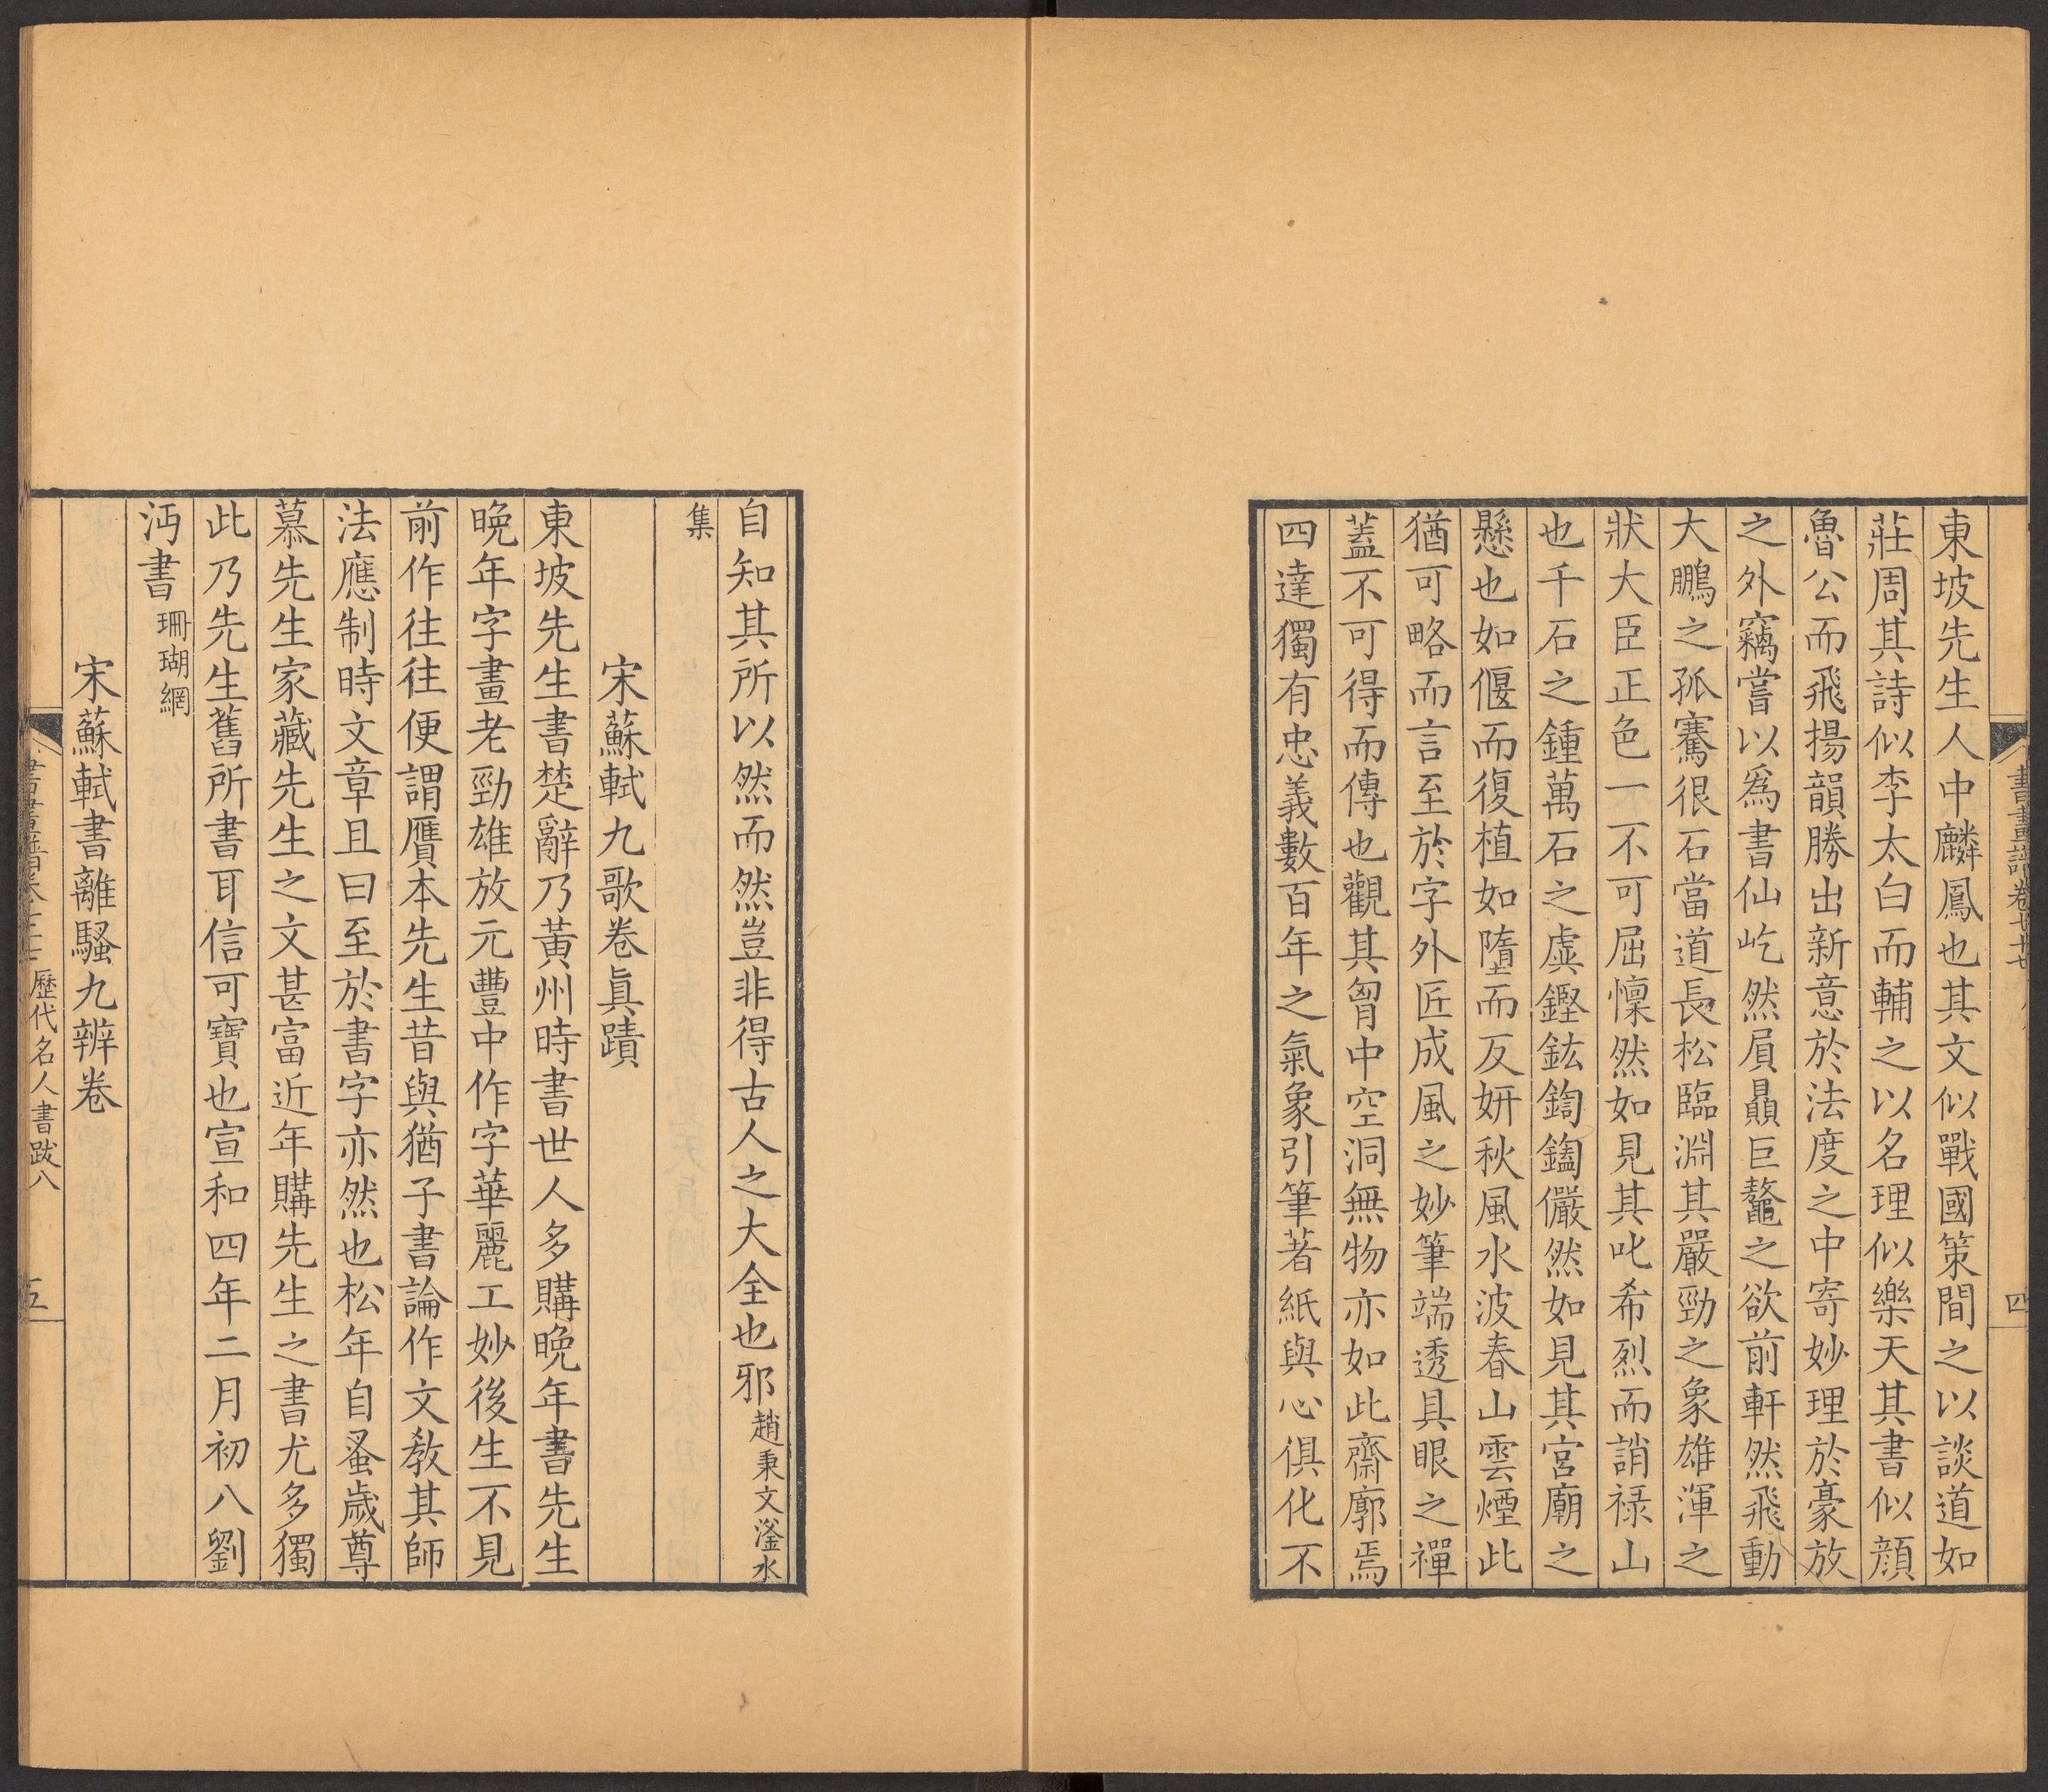 東坡先生人中麟鳳也其文似戰國策間之以談道如
莊周其詩似李太白而輔之以名理似樂天其書似顏
魯公而飛揚韻勝出新意於法度之中寄妙理於豪放
之外竊嘗以爲書仙屹然屓贔巨鼇之欲前軒然飛動
大鵬之孤騫很石當道長松臨淵其嚴勁之象雄渾之
狀大臣正色一不可屈懍然如見其叱希烈而誚禄山
也千石之鍾萬石之虡鏗鈜鍧鞳儼然如見其宮廟之
懸也如偃而復植如墮而反妍秋風水波春山雲煙此
猶可略而言至於字外匠成風之妙筆端透具眼之禪
蓋不可得而傳也觀其胷中空洞無物亦如此齋廓焉
四達獨有忠義數百年之氣象引筆著紙與心俱化不
自知其所以然而然豈非得古人之大全也邪 趙秉文滏水
集
宋蘇軾九歌卷眞蹟
東坡先生書楚辭乃黃州時書世人多購晩年書先生
晩年字畫老勁雄放元豐中作字華麗工妙後生不見
前作往往便謂贋本先生昔與猶子書論作文敎其師
法應制時文章且曰至於書字亦然也松年自蚤歲尊
慕先生家藏先生之文甚富近年購先生之書尤多獨
此乃先生舊所書耳信可寶也宣和四年二月初八劉
沔書 珊瑚網
宋蘇軾書離騷九辨卷
歷代名人書跋八
五